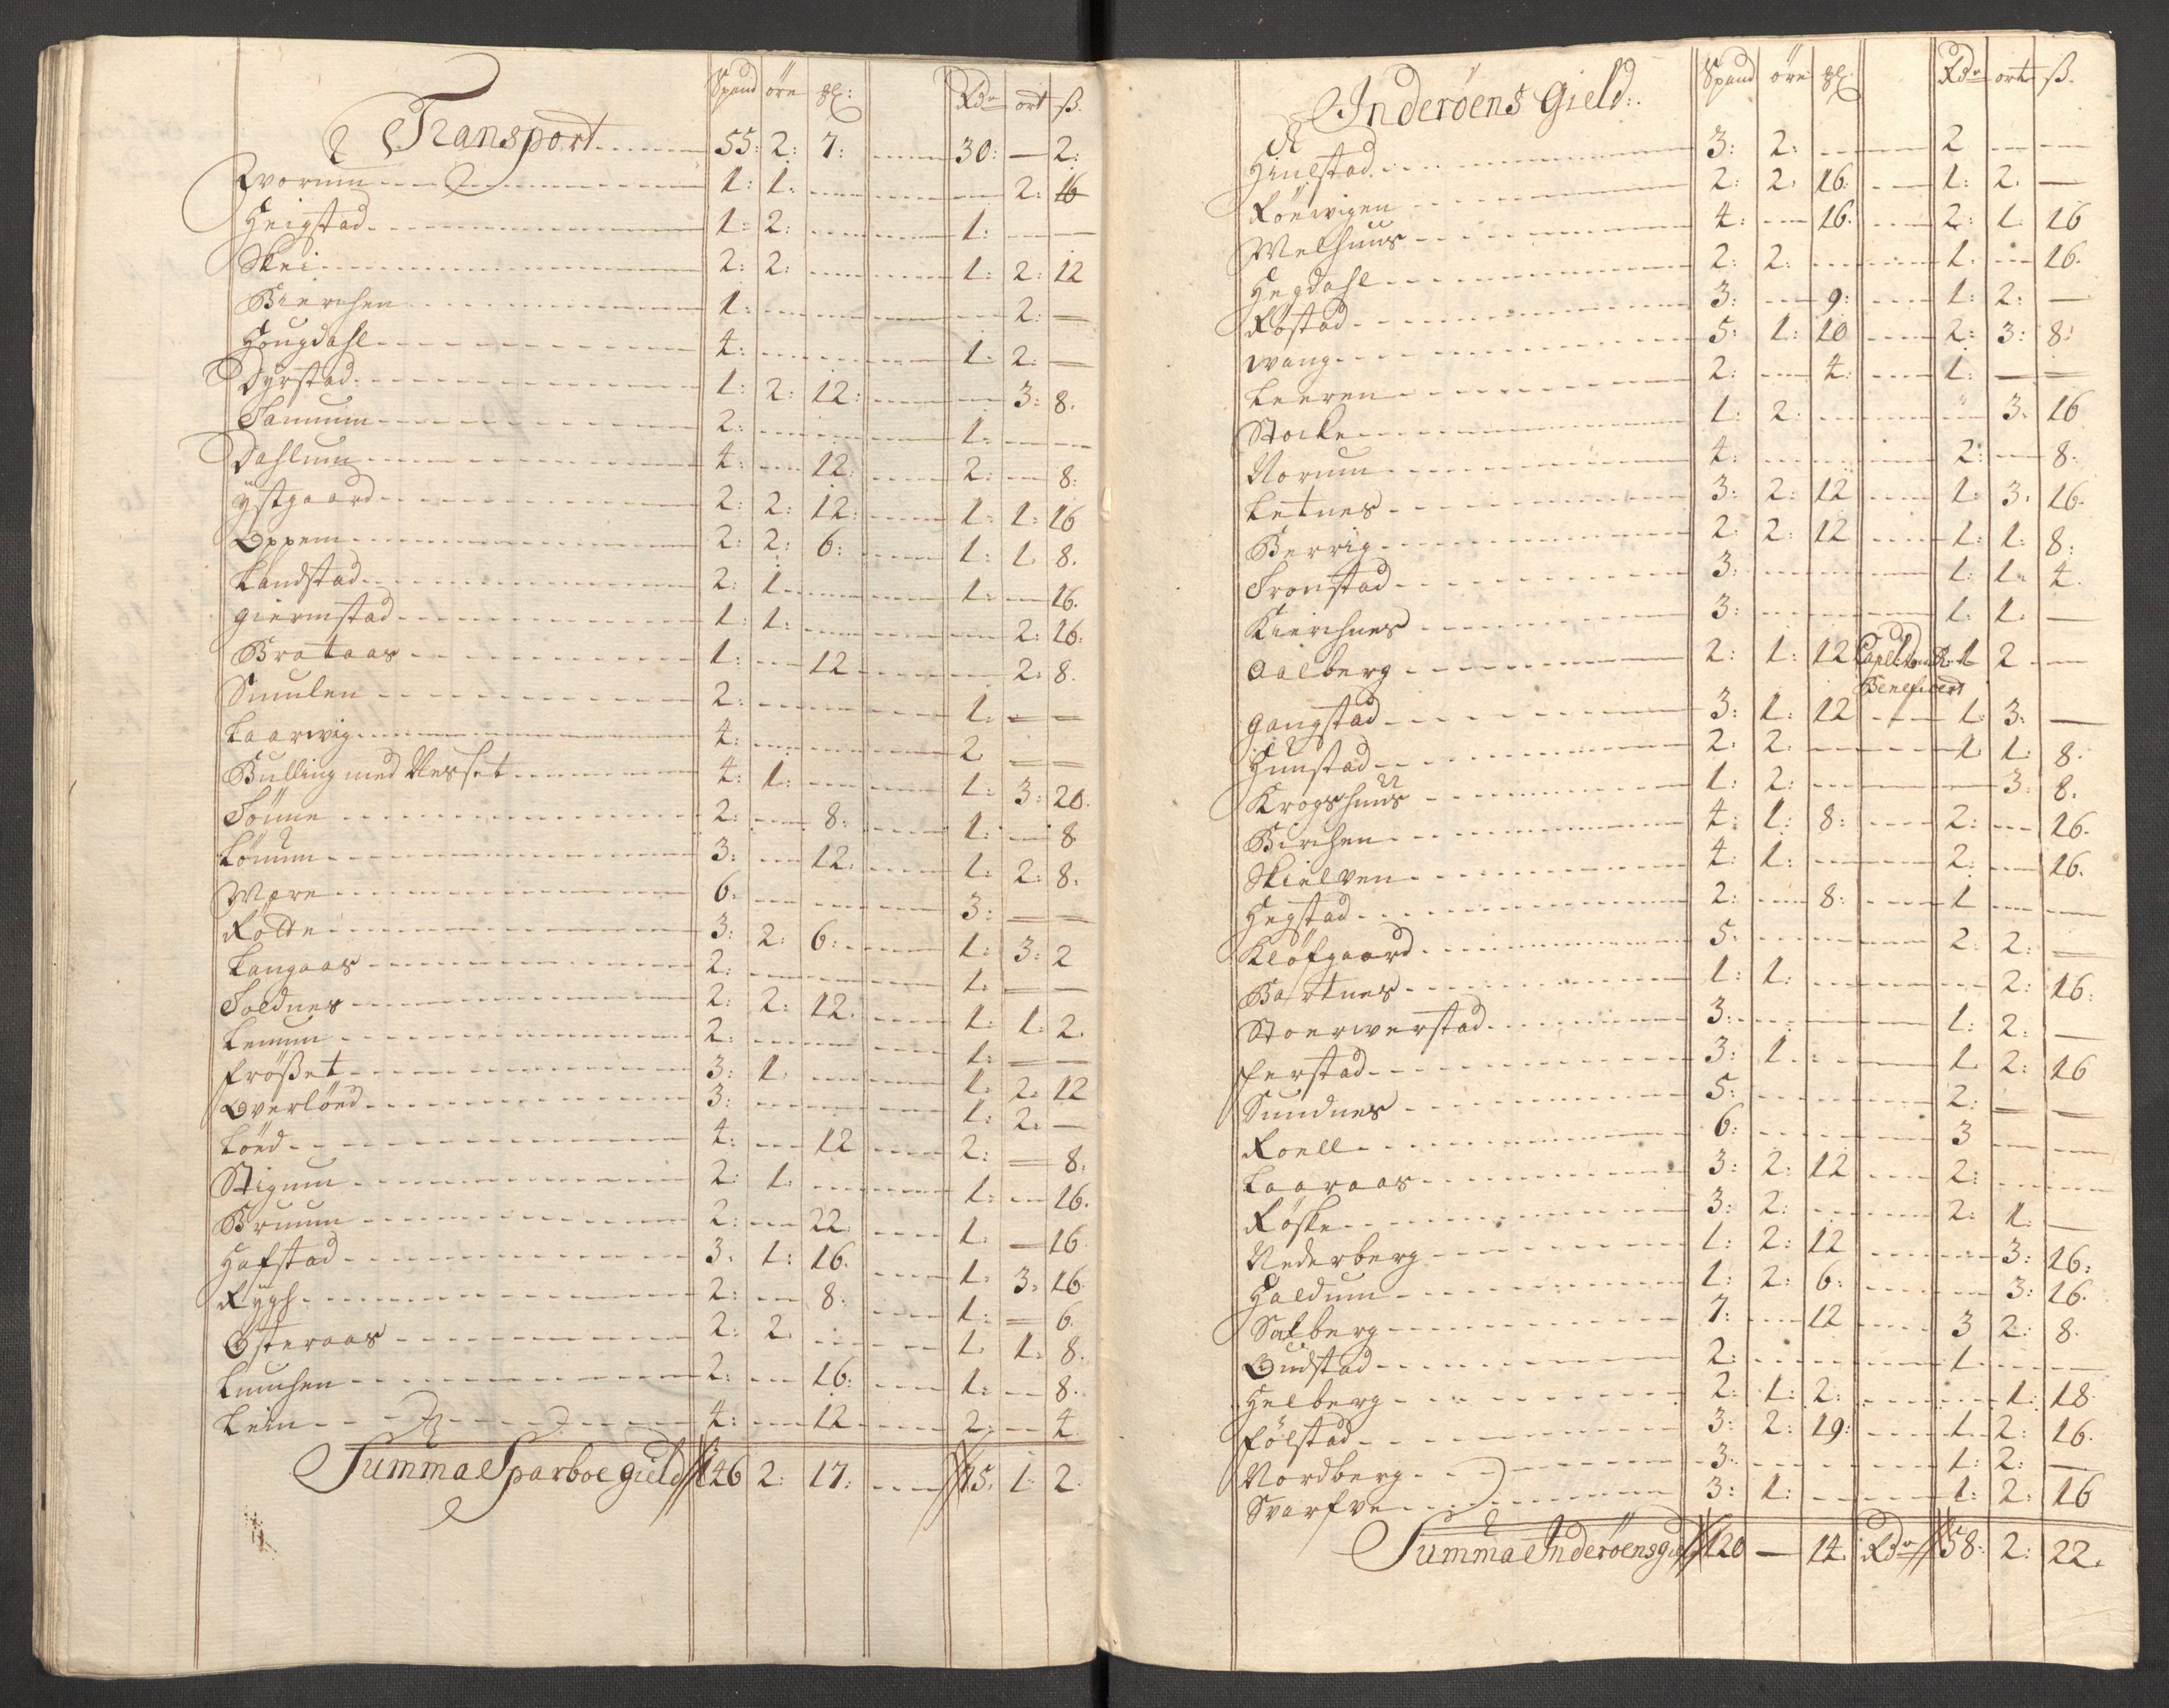 Spand öre gl: Rdr ort ß.
Transport 55: 2: 7: 30: — 2:
Qvorum 1: 1: 2: 16
Heigstad 1: 2: 1:
Skei 2: 2: 1: 2: 12
Bierchen 1: 2: —
Hougdahl 4: 1: 2: —
Dyrstad 1: 2: 12: 3: 8.
Samuum 2: 1:
Dahlum 4: 12: 2: 8:
ÿstgaard 2: 2: 12: 1: 1: 16
Oppem 2: 2: 6: 1: 1. 8.
Landstad 2: 1. 1: 16.
giermstad 1: 1: 2: 16:
Brataas 1: 12 2: 8.
Smulen 2: 1: — —
Laarwig 4: 2 — —
Bulling med Nesset 4: 1: 1: 3: 20.
Sönne 2: 8: 1: 8
Lönum 3: 12: 1: 2: 8.
Mære 6. 3: — —
Rotte 3: 2: 6: 1: 3: 2
Langaas 2: 1. — —
Foldnes 2: 2: 12. 1: 1: 2.
Lemm 2: 1: — —
frößet 3: 1. 1. 2. 12
Overlöed 3: 1: 2: —
Löed 4: 12 2: — 8:
Stigum 2: 1. 1: 16.
Bruum 2: 22: 1. — 16.
Hafstad 3. 1: 16. 1: 3. 16
Rygh 2: 8: 1: — 6.
Österaas 2: 2. 1. 1. 8.
Lunchen 2: 16: 1: 8.
Lein 4: 12 2: 4
Summa Sparboe gield 146 2: 17: 75. 1: 2.
Inderöens Gield: Spand öre gl Rdr ort ß.
Hiulstad 3: 2: 2
Röewigen 2: 2. 16: 1: 2. —
Welhuus 4: 16. 2: 1. 16
Hegdahl 2: 2: 1: 16.
Rostad 3: 9: 1: 2: —
wang 5: 1: 10 2: 3: 8:
Leeren 2: 4: 1: — —
Stocke 1: 2: 3. 16
Norum 4: 2: 8.
Letnes 3: 2: 12 1: 3. 16.
Berrig 2: 2: 12 1: 1: 8:
Tronstad 3: 1: 1. 4.
Kierchnes 3: 1: 1. —
Aalberg 2: 1: 12 1 2
Beneficert
gangstad 3: 1: 12 1: 3: —
Hunstad 2: 2: 1. 1: 8.
Krogshuus 1: 2: 3: 8.
Birchen 4: 1: 8: 2: 16.
Skielven 4: 1: 2: 16.
Hegstad 2: 8: 1
Klöfgaard 5. 2: 2: —
Bartnes 1: 1: 2: 16:
Stoerwerstad 3: 1: 2: —
ferstad 3: 1. 1. 2: 16
Sundnes 5: 2: — —
Roell 6: 3
Laaraas 3: 2: 12 2:
Röske 3: 2: 2: 1. —
Nederberg 1: 2: 12 3: 16:
Haldum 1: 2: 6: 3: 16.
Salberg 7: 12 3 2: 8.
Gudstad 2: 1.
Helberg 2: 1: 2: 1: 18
Fölstad 3: 2: 19: 1. 2: 16.
Nordberg 3: 1: 2: —
Svarfve 3: 1: 1: 2: 16
Summa Inderöensgield 120 — 14. Rdr 58: 2: 22.